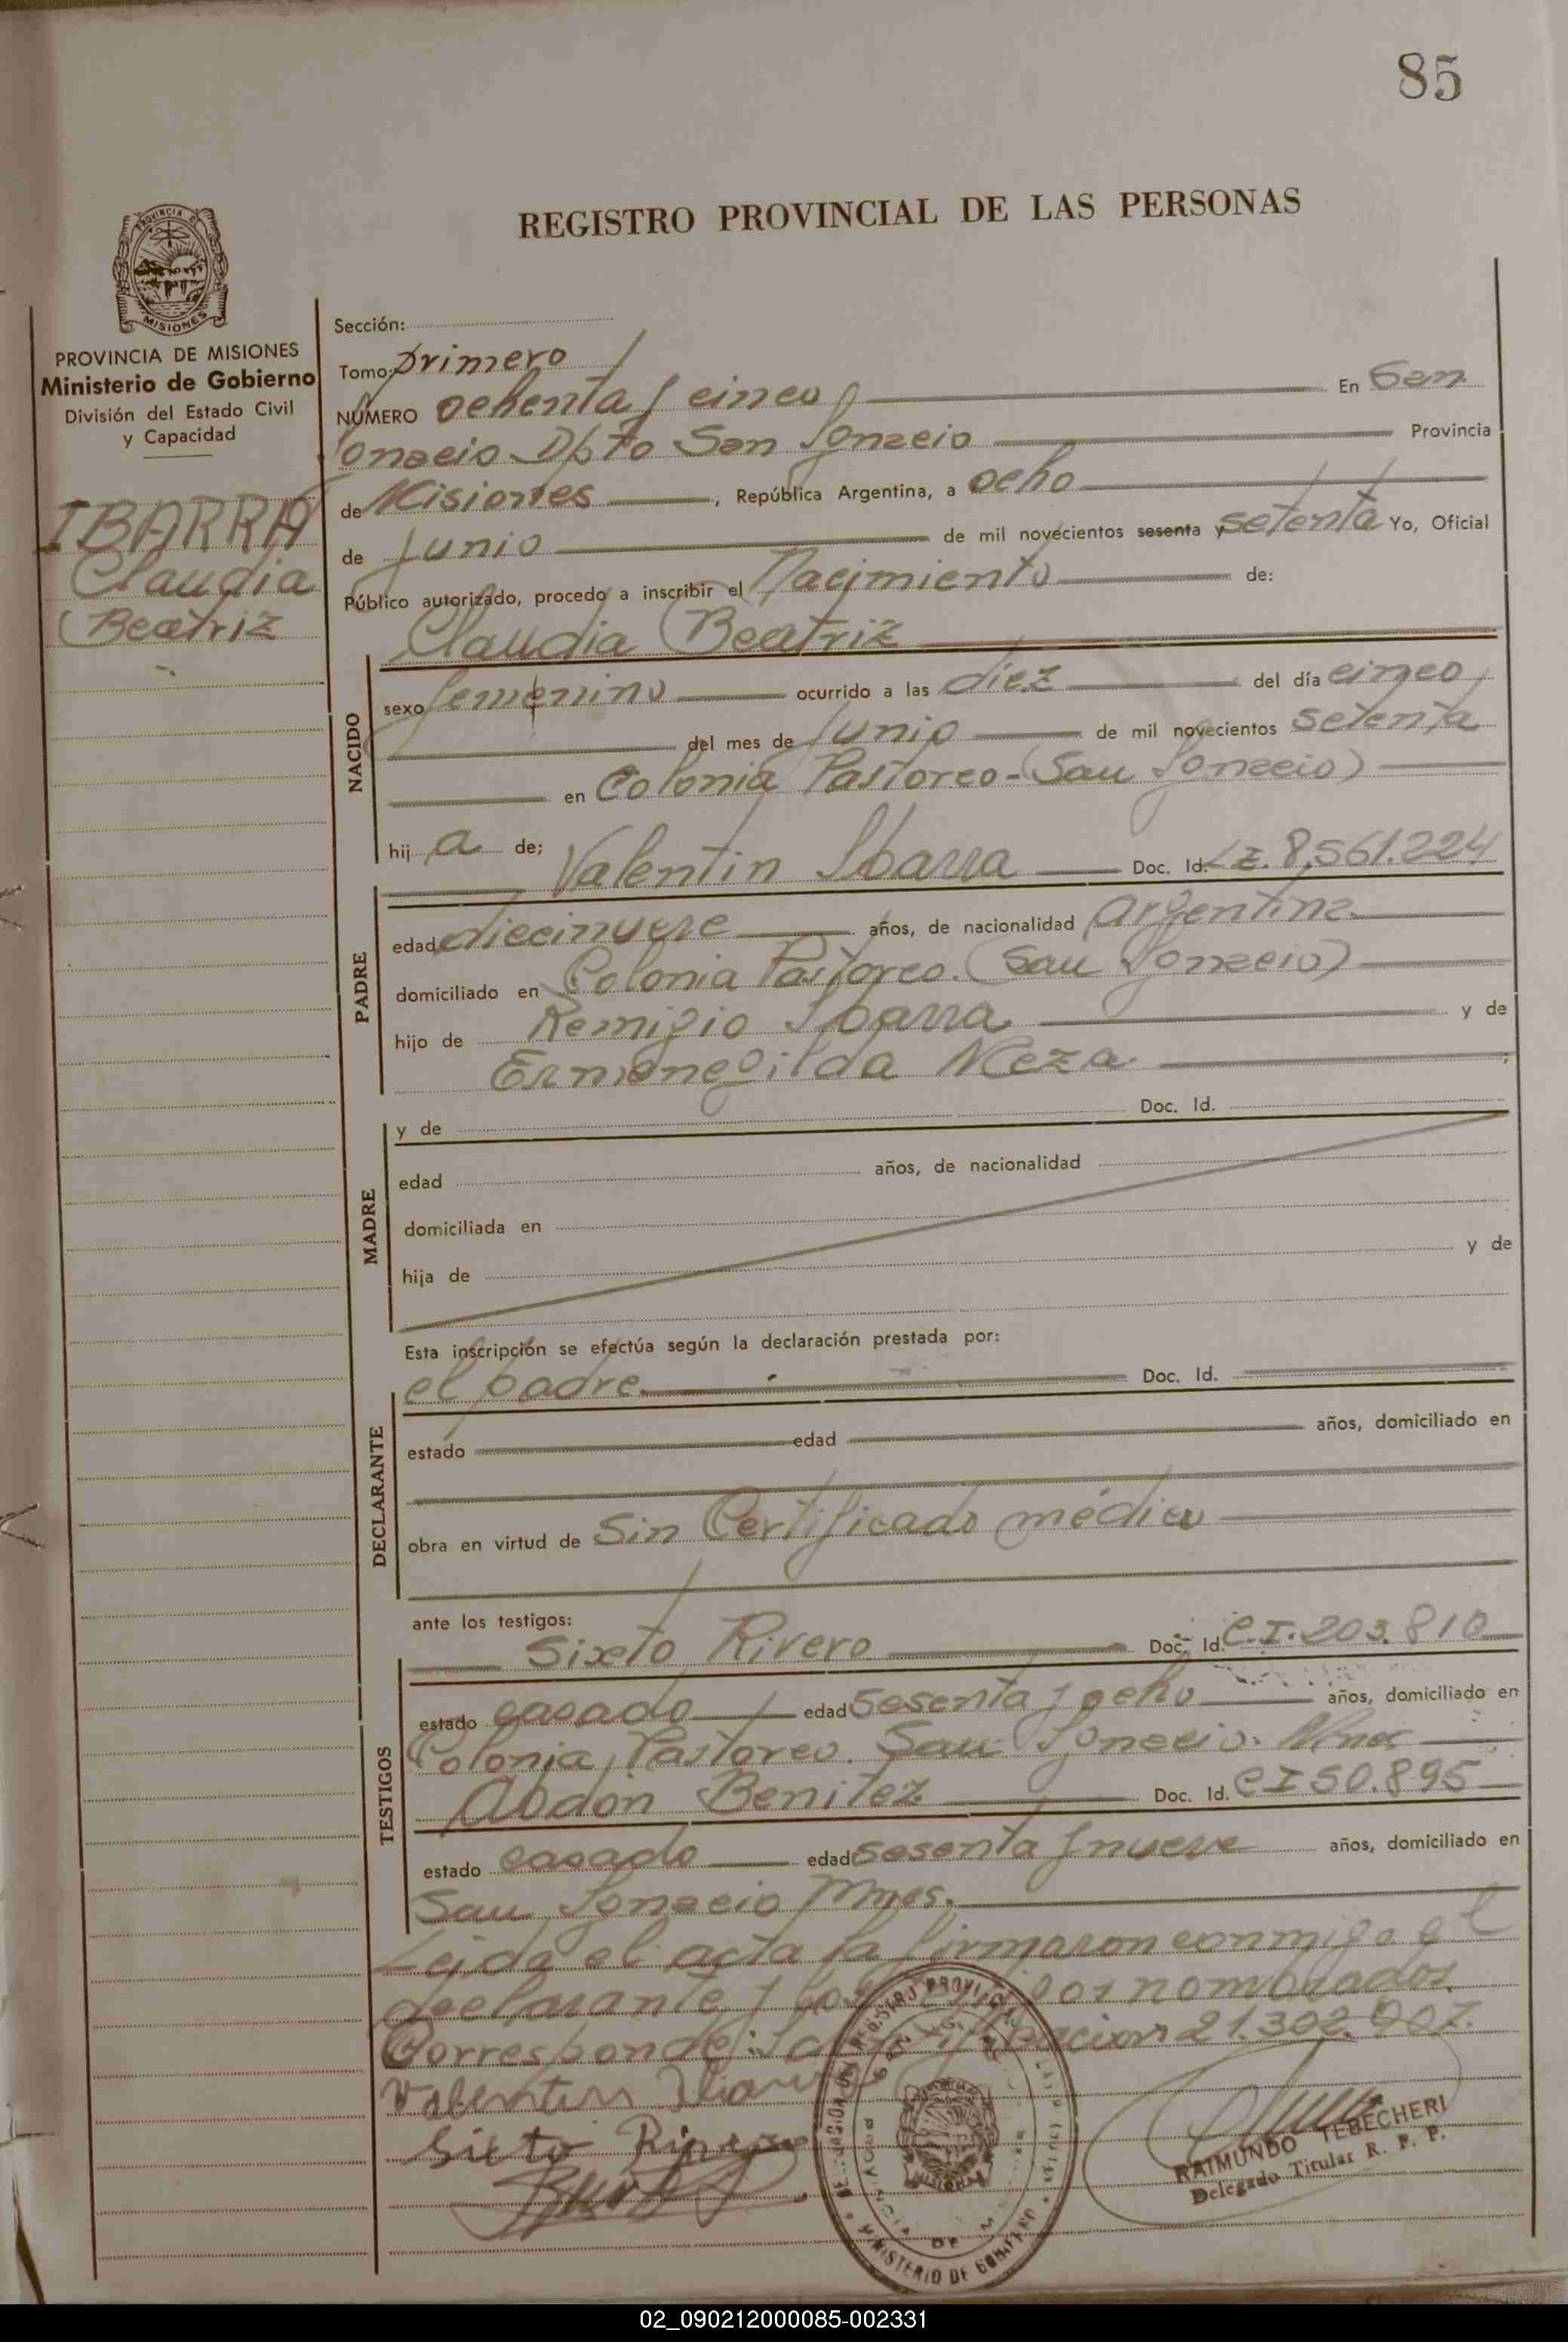 85
REGISTRO PROVINCIAL DE LAS PERSONAS
PROVINCIA DE MISIONES
Ministerio de Gobierno
División del Estado Civil
y Capacidad
IBARRA
Claudia
Beatriz
Sección:
Tomo: primero
NÚMERO ochenta y cinco En San
Ignacio Dpto San Ignacio Provincia
de Misiones, República Argentina, a ocho
de Junio de mil novecientos sesenta y setenta Yo, Oficial
Público autorizado, procedo a inscribir el Nacimiento de:
Claudia Beatriz
NACIDO
sexo femenino ocurrido a las diez del día cinco
del mes de Junio de mil novecientos setenta
en Colonia Pastoreo-(San Ignacio)
hij a de;
Valentin Ibarra Doc. Id. 8.561.224
PADRE
edad diecinueve años, de nacionalidad argentina
domiciliado en Colonia Pastoreo. (San Ignacio)
hijo de Remigio Ibarra y de
Ermenegilda Meza
MADRE
y de Doc. Id.
edad años, de nacionalidad
domiciliada en
hija de y de
Esta inscripción se efectúa según la declaración prestada por:
el padre. Doc. Id.
DECLARANTE
estado edad años, domiciliado en
obra en virtud de Sin Certificado médico
ante los testigos:
Sixto Rivero Doc. Id. C.I. 203.810
TESTIGOS
estado casado edad sesenta y ocho años, domiciliado en
Colonia Pastoreo. San Ignacio. Mnes
Abdón Benitez Doc. Id. C I 50.895
estado casado edad sesenta y nueve años, domiciliado en
San Ignacio Mnes.
Leida el acta la firmaron conmigo el
declarante y los testigos nombrados.
Corresponde: la 21.302.907.
Valentin Ibarra
Sixto Rivero
RAIMUNDO TEBECHERI
Delegado Titular R. P. P.
MINISTERIO DE GOBIERNO
MISIONES
02_090212000085-002331